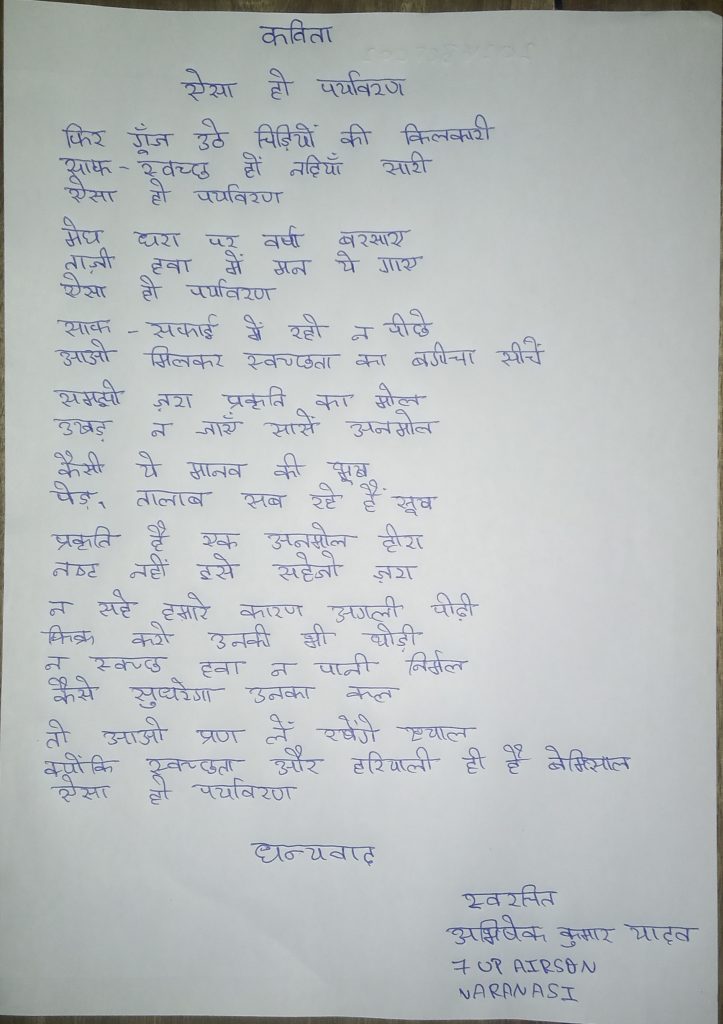 कविता
ऐसा हो पर्यावरण
फिर गूँज उठे चिड़ियों की किलकारी
साफ - स्वच्छ हों नदियाँ सारी
ऐसा हो पर्यावरण
मेघ धरा पर वर्षा बरसाए
ताज़ी हवा में मन ये गाए
ऐसा हो पर्यावरण
साफ - सफाई में रहो न पीछे
आओ मिलकर स्वच्छता का बगीचा सींचें
समझो ज़रा प्रकृति का मोल
उखड़ न जाएँ सासें अनमोल
कैसी ये मानव की भूख
पेड़, तालाब सब रहे हैं सूख
प्रकृति है एक अनमोल हीरा
नष्ट नहीं इसे सहेजो ज़रा
न सहे हमारे कारण अगली पीढ़ी
फिक्र करो उनकी भी थोड़ी
न स्वच्छ हवा न पानी निर्मल
कैसे सुधरेगा उनका कल
तो आओ प्रण लें रखेंगे ख़्याल
क्योंकि स्वच्छता और हरियाली ही है बेमिसाल
ऐसा हो पर्यावरण
धन्यवाद
स्वरचित
अभिषेक कुमार यादव
7 UP AIRSQN
VARANASI